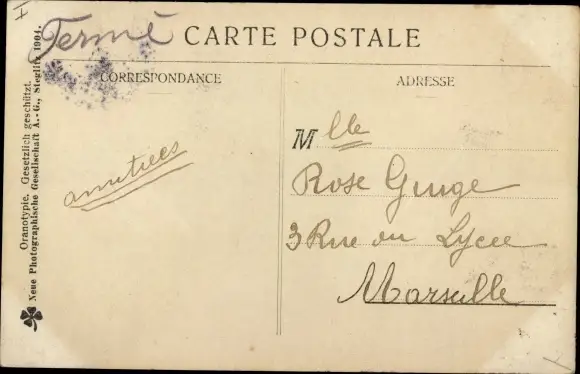 Fermé
CARTE POSTALE
CORRESPONDANCE
ADRESSE
Mlle
Rose
3 Rue du Lycée
Marseille
Oranotypie. Gesetzlich geschützt.
Neue Photographische Gesellschaft A.-G., Steglitz 1904.